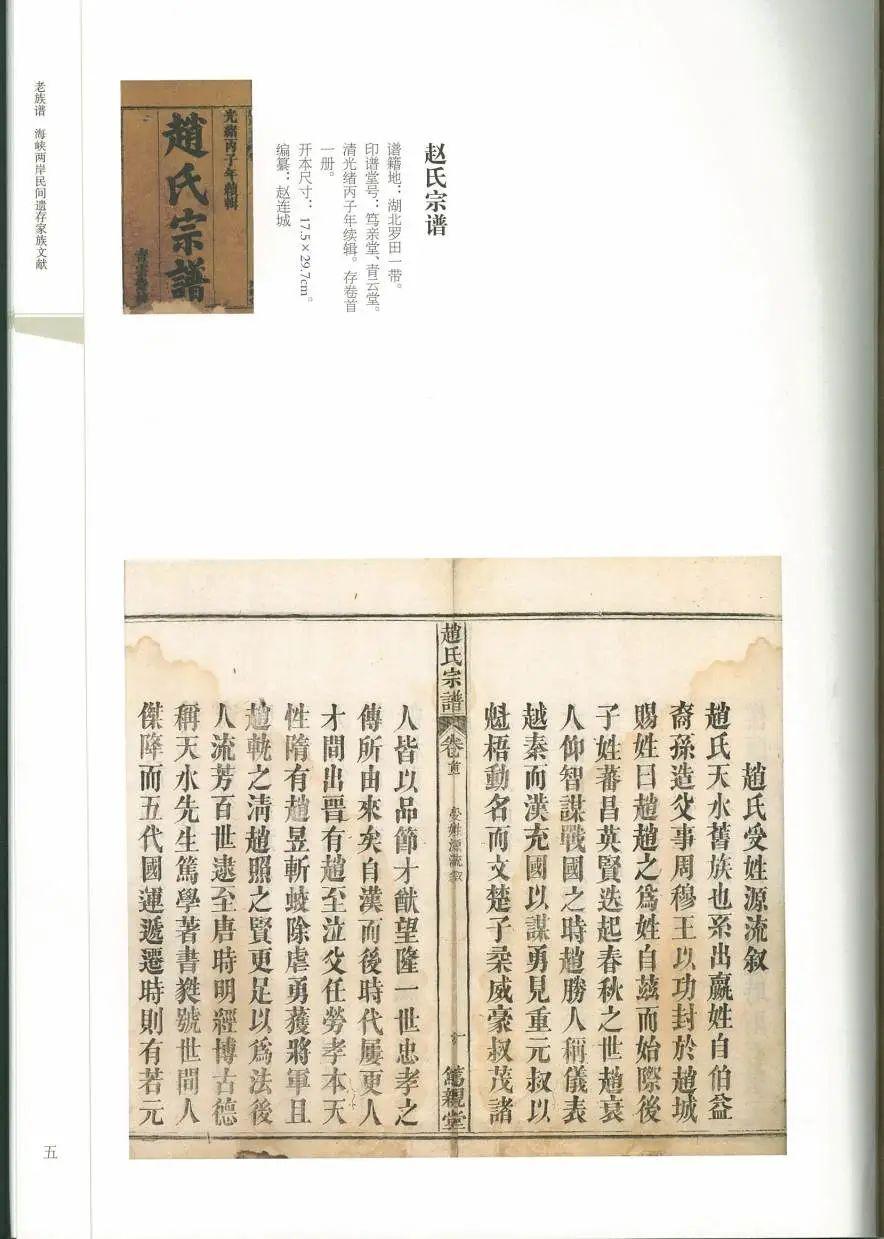 老族谱 海峡两岸民间遗存家族文献
赵氏宗谱
谱籍地：湖北罗田一带。
印谱堂号：笃亲堂、青云堂。
清光绪丙子年续辑。存卷首
一册。
开本尺寸：17.5×29.7cm。
编纂：赵连城
光緒丙子年續輯
趙氏宗譜
趙氏受姓源流叙
趙氏天水舊族也系出嬴姓自伯益
裔孫造父事周穆王以功封於趙城
賜姓曰趙趙之爲姓自兹而始際後
子姓蕃昌英賢迭起春秋之世趙衰
人仰智謀戰國之時趙勝人稱儀表
越秦而漢充國以謀勇見重元叔以
魁梧動名而文楚子柔威豪叔茂諸
趙氏宗譜 卷首 受姓源流叙 篤親堂
人皆以品節才猷望隆一世忠孝之
傳所由來矣自漢而後時代屢更人
才間出晋有趙至泣父任勞孝本天
性隋有趙昱斬蛟除虐勇獲將軍且
趙軌之清趙照之賢更足以爲法後
人流芳百世逮至唐時明經博古德
稱天水先生篤學著書㲋號世間人
傑降而五代國運遞遷時則有若元
五